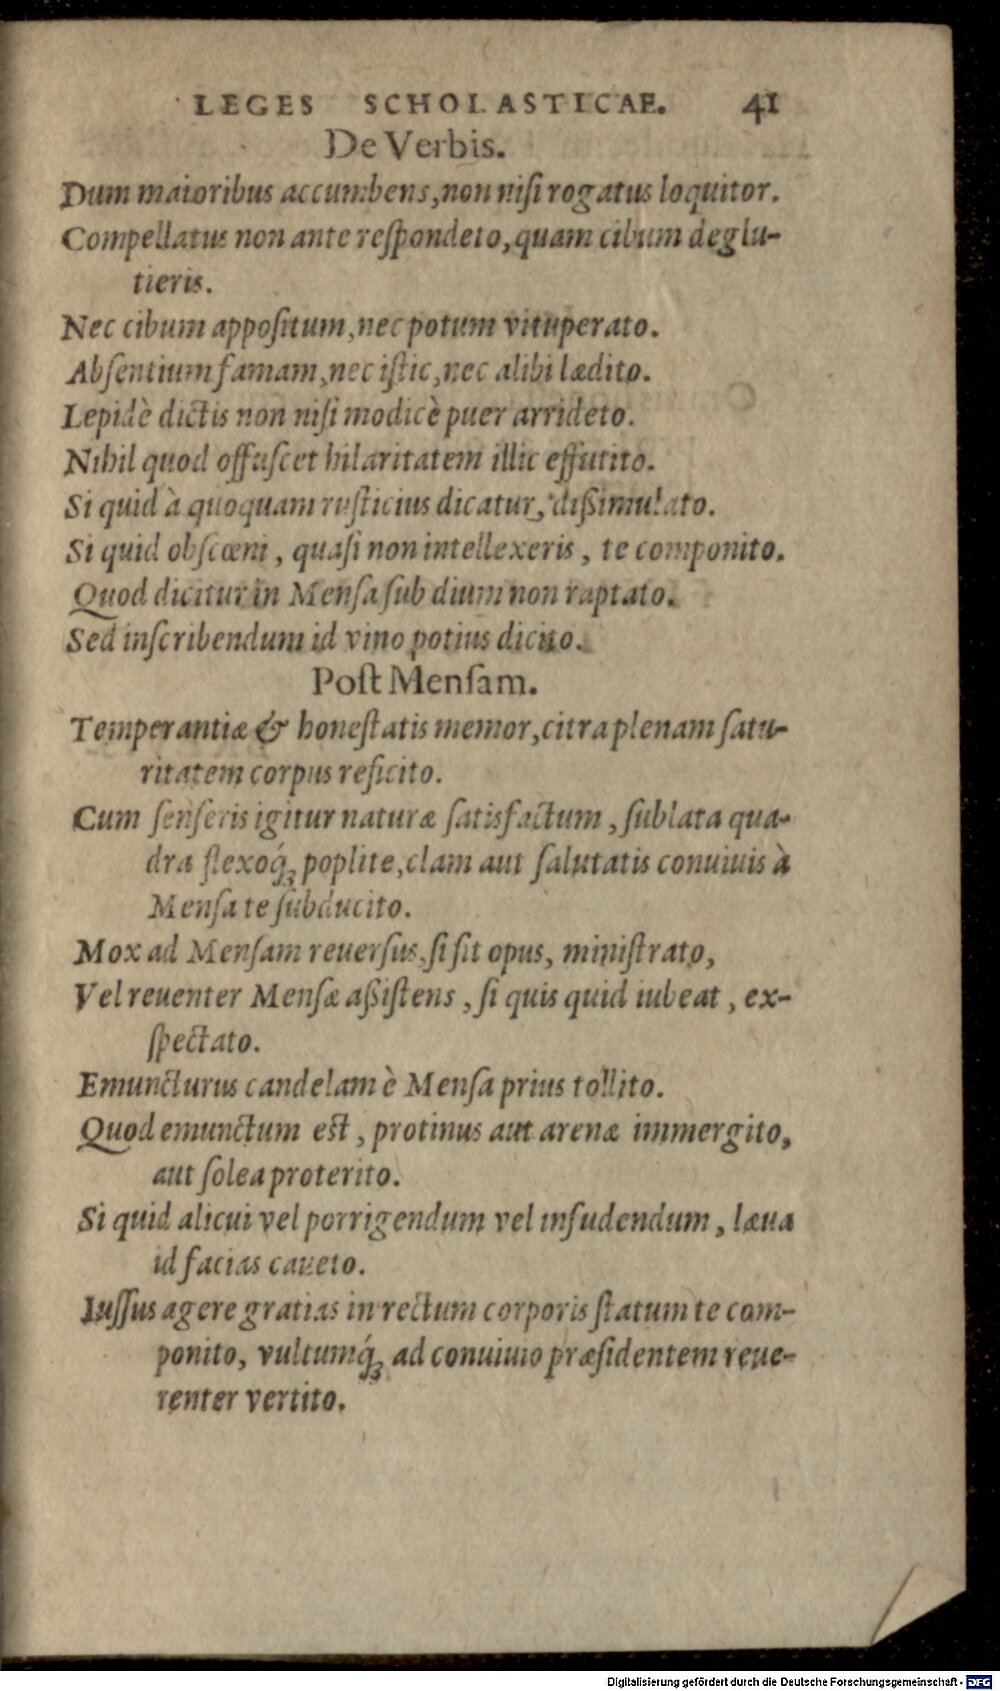 LEGES SCHOLASTICAE. 41
De Verbis.
Dum maioribus accumbens, non niſi rogatus loquitor.
Compellatus non ante reſpondeto, quam cibum deglu-
tieris.
Nec cibum appoſitum, nec potum vituperato.
Abſentium famam, nec iſtic, nec alibi lædito.
Lepidè dictis non niſi modicè puer arrideto.
Nihil quod offuſcet hilaritatem illic effutito.
Si quid à quoquam ruſticius dicatur, dißimulato.
Si quid obſcœni, quaſi non intellexeris, te componito.
Quod dicitur in Menſa ſub dium non raptato.
Sed inſcribendum id vino potius dicito.
Poſt Menſam.
Temperantiæ & honeſtatis memor, citra plenam ſatu-
ritatem corpus reficito.
Cum ſenſeris igitur naturæ ſatisfactum, ſublata qua-
dra flexoq́; poplite, clam aut ſalutatis conuiuis à
Menſa te ſubducito.
Mox ad Menſam reuerſus, ſi ſit opus, miniſtrato,
Vel reuenter Menſæ aßiſtens, ſi quis quid iubeat, ex-
ſpectato.
Emuncturus candelam è Menſa prius tollito.
Quod emunctum eſt, protinus aut arenæ immergito,
aut ſolea proterito.
Si quid alicui vel porrigendum vel inſudendum, læua
id facias caueto.
Iuſſus agere gratias in rectum corporis ſtatum te com-
ponito, vultumq́; ad conuiuio præſidentem reue-
renter vertito.
Digitalisierung gefördert durch die Deutsche Forschungsgemeinschaft - DFG